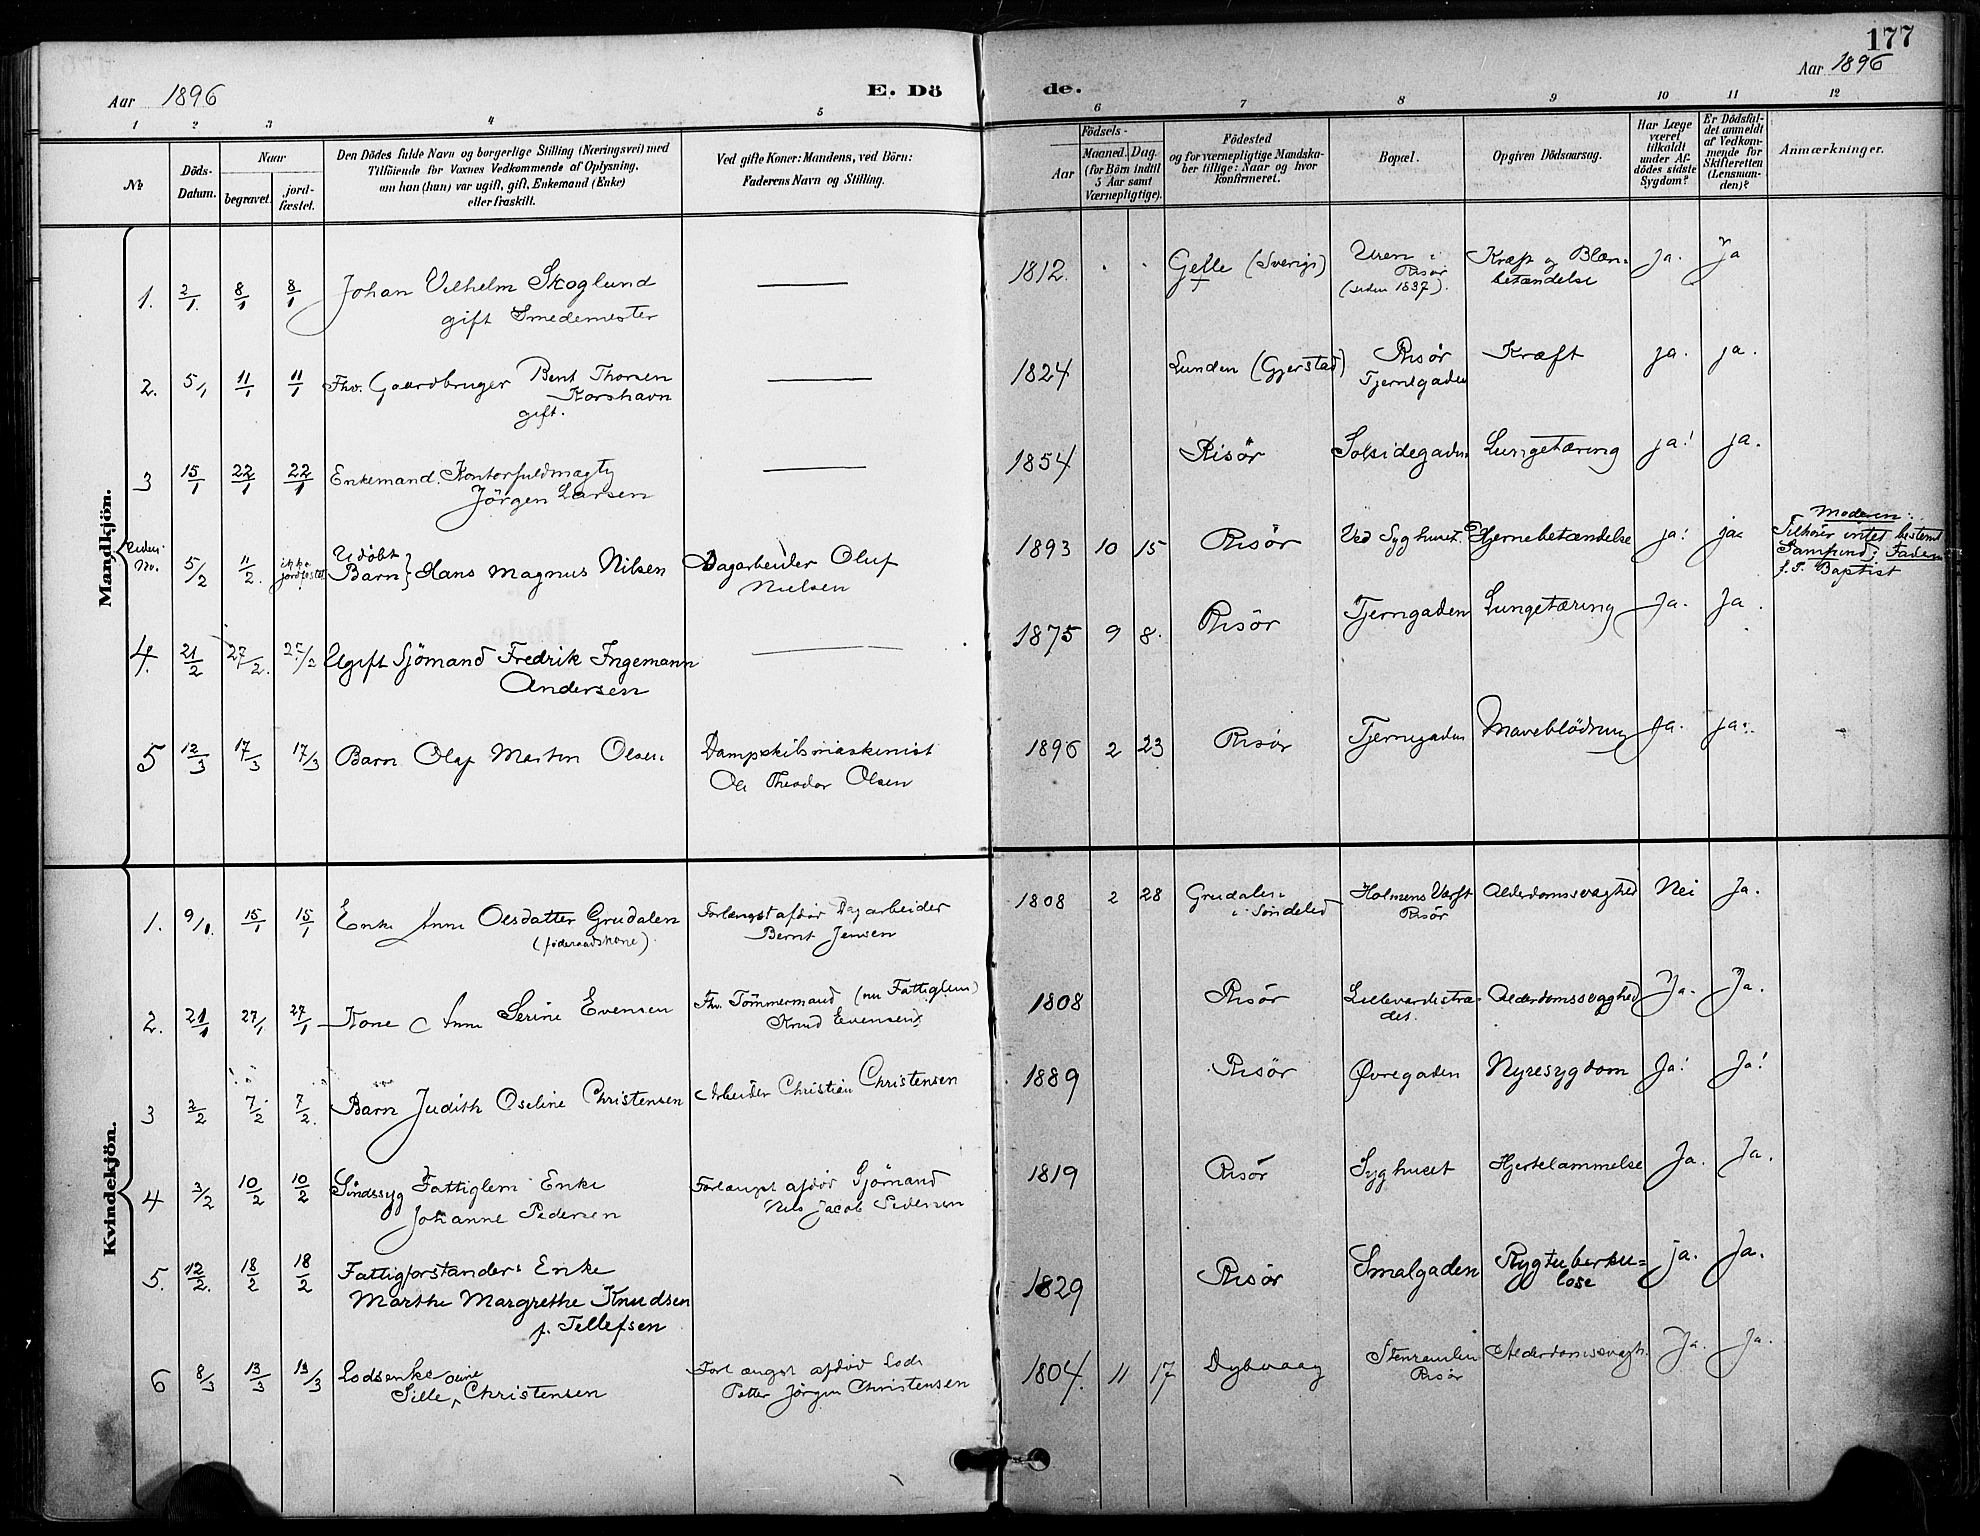 177
Aar 1896
E. Dö
de.
Aar 1896
1 2 3 4 5 6 7 8 9 10 11 12
No
Döds-Datum.
Naar
begravet.
jord-fæstet.
Den Dödes fulde Navn og borgerlige Stilling (Næringsvei) med
Tilföiende for Voxnes Vedkommende af Oplysning,
om han (hun) var ugift, gift, Enkemand (Enke)
eller fraskilt.
Ved gifte Koner: Mandens, ved Börn:
Faderens Navn og Stilling.
Födsels-
Aar
Maaned. Dag.
(for Börn indtil
5 Aar samt
Værnepligtige).
Födested
og for værnepligtige Mandska-
ber tillige: Naar og hvor
konfirmeret.
Bopæl.
Opgiven Dödsaarsag.
Har Læge
været
tilkaldt
under Af-
dödes sidste
Sygdom?
Er Dödsfal-
det anmeldt
af Vedkom-
mende for
Skifteretten
(Lensman-
den)?
Anmærkninger.
Mandkjön.
1. 2/1. 8/1 8/1 Johan Vilhelm Skoglund
gift Smedemester
1812. Gefle (Sverige) Uren i
Risör
(siden 1837).
Kræft og Blære-
betændelse
Ja. Ja
2. 5/1 11/1 11/1 Fhv. Gaardbruger Bent Thorsen
Korshavn
gift.
1824 Lunden (Gjerstad) Risør
Tjernsgaden
Kræft ja. ja.
3 15/1 22/1 22/1 Enkemand. Kontorfuldmægtg
Jörgen Larsen
1854 Risör Solsidegaden Lungetæring ja! ja.
Uden
No. 5/2 11/2. ikke
jordfæstet
Udöbt
Barn } Hans Magnus Nilsen
Dagarbeider Oluf
Nielsen
1893 10 15 Risör Ved Syghuset. Hjernebetændelse ja! ja
Moderen
Tilhörer intet bestemt
Samfund; Faderen
f. T. Baptist
4. 21/2 27/2. 27/2 Ugift Sjömand Fredrik Ingemann
Andersen
1875 9 8. Risör Tjerngaden Lungetæring Ja. Ja.
5 12/3 17/3 17/3 Barn Olaf Martin Olsen
Dampskibsmaskinist
Ole Theodor Olsen
1896 2 23 Risör Tjerngaden Maveblödning Ja. ja.
Kvindekjön.
1. 9/1. 15/1 15/1 Enke Anne Olsdatter Grudalen
(föderaadskone).
Forlængst afdör Dagarbeider
Bernt Jensen
1808 2 28 Grudalen
i Söndeled
Holmens Værft
Risör
Alderdomssvaghed Nei Ja.
2. 21/1 27/1 27/1 Kone Anne Serine Evensen
Fhv. Tömmermand (nu Fattiglem)
Knud Evensen
1808 Risör Lillevardestræ-
det.
Alderdomssvaghed Ja. Ja.
3 2/2 7/2 7/2. Barn Judith Oseline Christensen
Arbeider Christian Christensen
1889 Risör Øvregaden Nyresygdom Ja! Ja!
4 3/2 10/2 10/2 Sindssyg Fattiglem Enke
Johanne Pedersen
Forlængst afdöd Sjömand
Nils Jacob Pedersen
1819 Risör Syghuset Hjertelammelse Ja. Ja.
5. 12/2. 18/2 18/2 Fattigforstanders Enke
Marthe Margrethe Knudsen
f. Tellefsen
1829 Risör Smalgaden Rygtuberku=
lose
ja. Ja.
6 8/3 13/3 13/3 Lodsenke
Sille oline Christensen
Forlængst afdöd Lods
Petter Jörgen Christensen
1804. 11 17 Dybvaag Stenramlen
Risör
Alderdomssvagh. Ja. Ja.